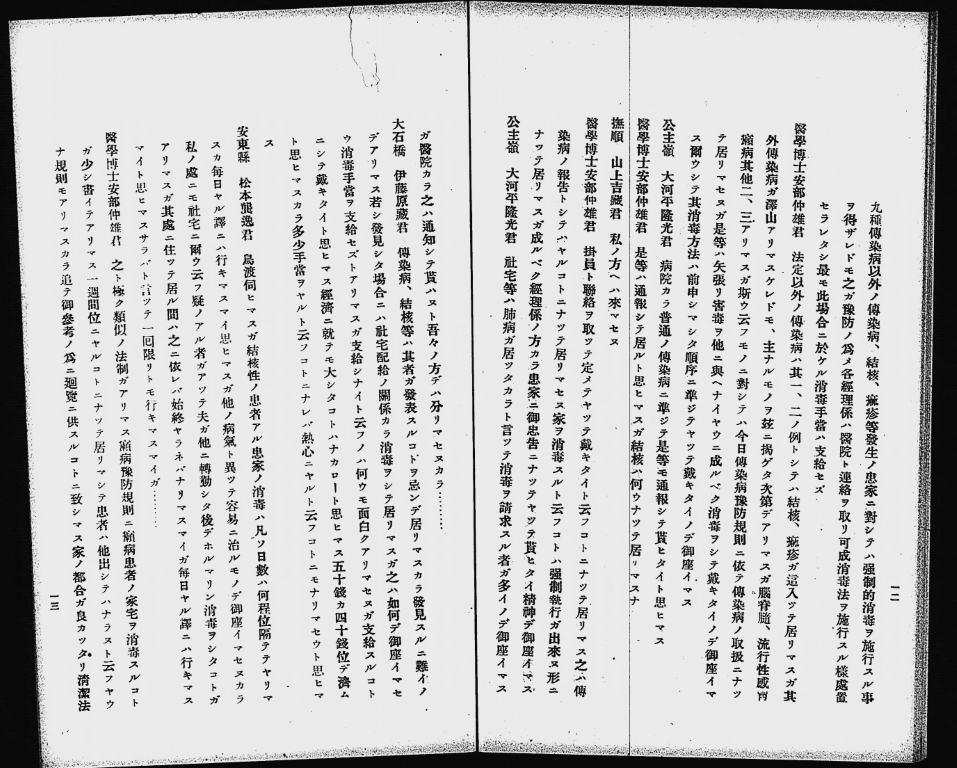 九種傳染病以外ノ傳染病、結核、痲疹等發生ノ患家ニ對シテハ强制的消毒ヲ施行スル事
ヲ得ザレドモ之ガ豫防ノ爲メ各經理係ハ醫院ト連絡ヲ取リ可成消毒法ヲ施行スル樣處置
セラレタシ最モ此場合ニ於ケル消毒手當ハ支給セズ
醫學博士安部仲雄君 法定以外ノ傳染病ハ其一、二ノ例トシテハ結核、痲疹ガ這入ツテ居リマスガ其
外傳染病ガ澤山アリマスケレドモ、主ナルモノヲ玆ニ揭ゲタ次第デアリマスガ腦脊髓、流行性感冒
癩病其他二、三アリマスガ斯ウ云フモノニ對シテハ今日傳染病豫防規則ニ依テ傳染病ノ取扱ニナツ
テ居リマセヌガ是等ハ矢張リ害毒ヲ他ニ與ヘナイヤウニ成ルベク消毒ヲシテ戴キタイノデ御座イマ
ス爾ウシテ其消毒方法ハ前申シマシタ順序ニ準ジテヤツテ戴キタイノデ御座イマス
公主嶺 大河平隆光君 病院カラ普通ノ傳染病ニ準ジテ是等モ通報シテ貰ヒタイト思ヒマス
醫學博士安部仲雄君 是等ハ通報シテ居ルト思ヒマスガ結核ハ何ウナツテ居リマスナ
撫順 山上吉藏君 私ノ方ヘハ來マセヌ
醫學博士安部仲雄君 掛員ト聯絡ヲ取ツテ定メテヤツテ戴キタイト云フコトニナツテ居リマス之ハ傳
染病ノ報告トシテハヤルコトニナツテ居リマセヌ家ヲ消毒スルト云フコトハ强制執行ガ出來ヌ形ニ
ナツテ居リマスガ成ルベク經理係ノ方カラ患家ニ御忠告ニナツテヤツテ貰ヒタイ精神デ御座イマス
公主嶺 大河平隆光君 社宅等ハ肺病ガ居ツタカラト言ツテ消毒ヲ請求スル者ガ多イノデ御座イマス
一二
ガ醫院カラ之ハ通知シテ貰ハヌト吾々ノ方デハ分リマセヌカラ………
大石橋 伊藤原藏君 傳染病、結核等ハ其者ガ發表スルコトヲ忌ンデ居リマスカラ發見スルニ難イノ
デアリマス若シ發見シタ場合ニハ社宅配給ノ關係カラ消毒ヲシテ居リマスガ之ハ如何デ御座イマセ
ウ消毒手當ヲ支給セズトアリマスガ支給シナイト云フノハ何ウモ面白クアリマセヌガ支給スルコト
ニシテ戴キタイト思ヒマス經濟ニ就テモ大シタコトハナカロート思ヒマス五十錢カ四十錢位デ濟ム
ト思ヒマスカラ多少手當ヲヤルト云フコトニナレバ熱心ニヤルト云フコトニモナリマセウト思ヒマ
ス
安東縣 松本龔逸君 鳥渡伺ヒマスガ結核性ノ患者アル患家ノ消毒ハ凡ソ日數ハ何程位隔テテヤリマ
スカ每日ヤル譯ニハ行キマスマイ思ヒマスガ他ノ病氣ト異ツテ容易ニ治ルモノデ御座イマセヌカラ
私ノ處ニモ社宅ニ爾ウ云フ疑ノアル者ガアツテ夫ガ他ニ轉勤シタ後デホルマリン消毒ヲシタコトガ
アリマスガ其處ニ住ツテ居ル間ハ之ニ依レバ始終ヤラネバナリマスマイガ每日ヤル譯ニハ行キマス
マイト思ヒマスサラバト言ツテ一囘限リトモ行キマスマイガ………
醫學博士安部仲雄君 之ト極ク類似ノ法制ガアリマス癩病豫防規則ニ癩病患者ノ家宅ヲ消毒スルコト
ガ少シ書イテアリマス一週間位ニヤルコトニナツテ居リマシテ患者ハ他出シテハナラヌト云フヤウ
ナ規則モアリマスカラ追テ御參考ノ爲ニ廻覽ニ供スルコトニ致シマス家ノ都合ガ良カツタリ淸潔法
一三